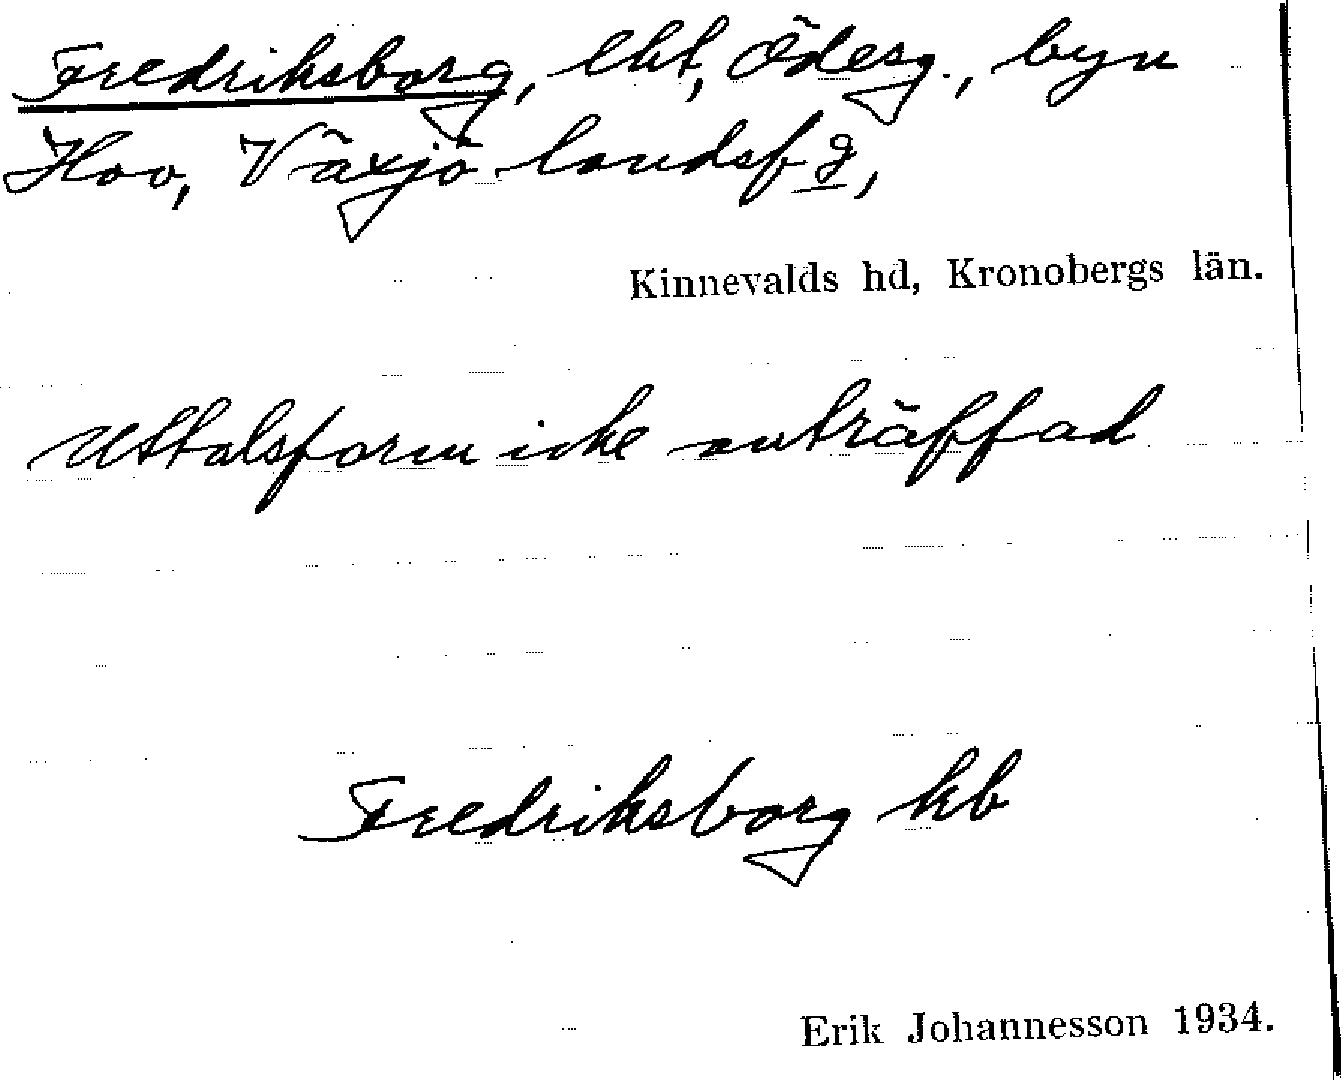 Fredriksborg, lht, Ödesg., byn
Hov, Växjö landsfg,
Kinnevalds hd, Kronobergs län.
Uttalsform icke anträffad
Fredriksborg kb
Erik Johannesson 1934.